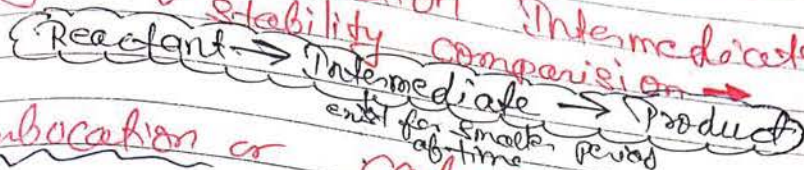 Intermediate
Stability comparision →
Reactant → Intermediate → Product
exist for smaller period
of time
or